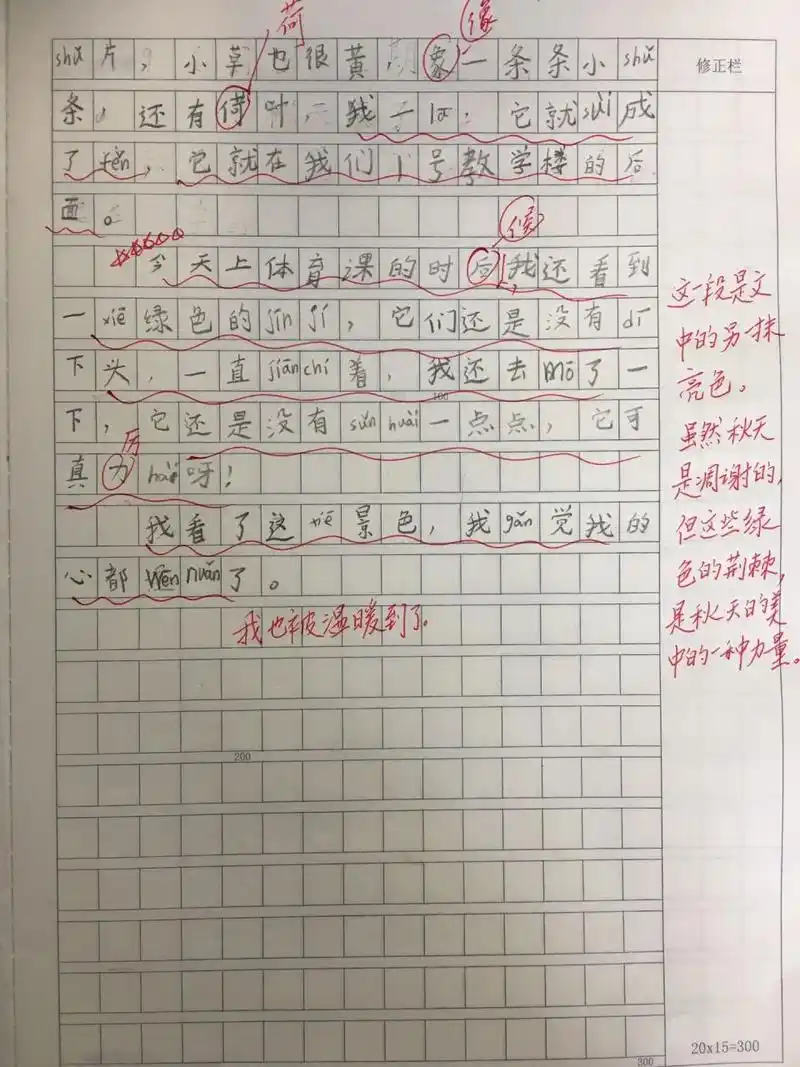 荷
像
shǔ片，小草也很黄，象一条条小shǔ
修正栏
条，还有倚叶，我一la，它就suì成
了fěn，它就在我们1号教学楼的后
面。
候
今天上体育课的时后，我还看到
一xiē绿色的jīn jí，它们还是没有dī
下头，一直jiānchí着，我还去mō了一
下，它还是没有sǔn huài一点点，它可
厉
真力hài呀！
我看了这xiē景色，我gǎn觉我的
心都wēn nuǎn了。
我也被温暖到了。
这一段是文
中的另一抹
亮色。
虽然秋天
是凋谢的，
但这些绿
色的荆棘，
是秋天的美
中的一种力量。
100
200
300
20x15=300